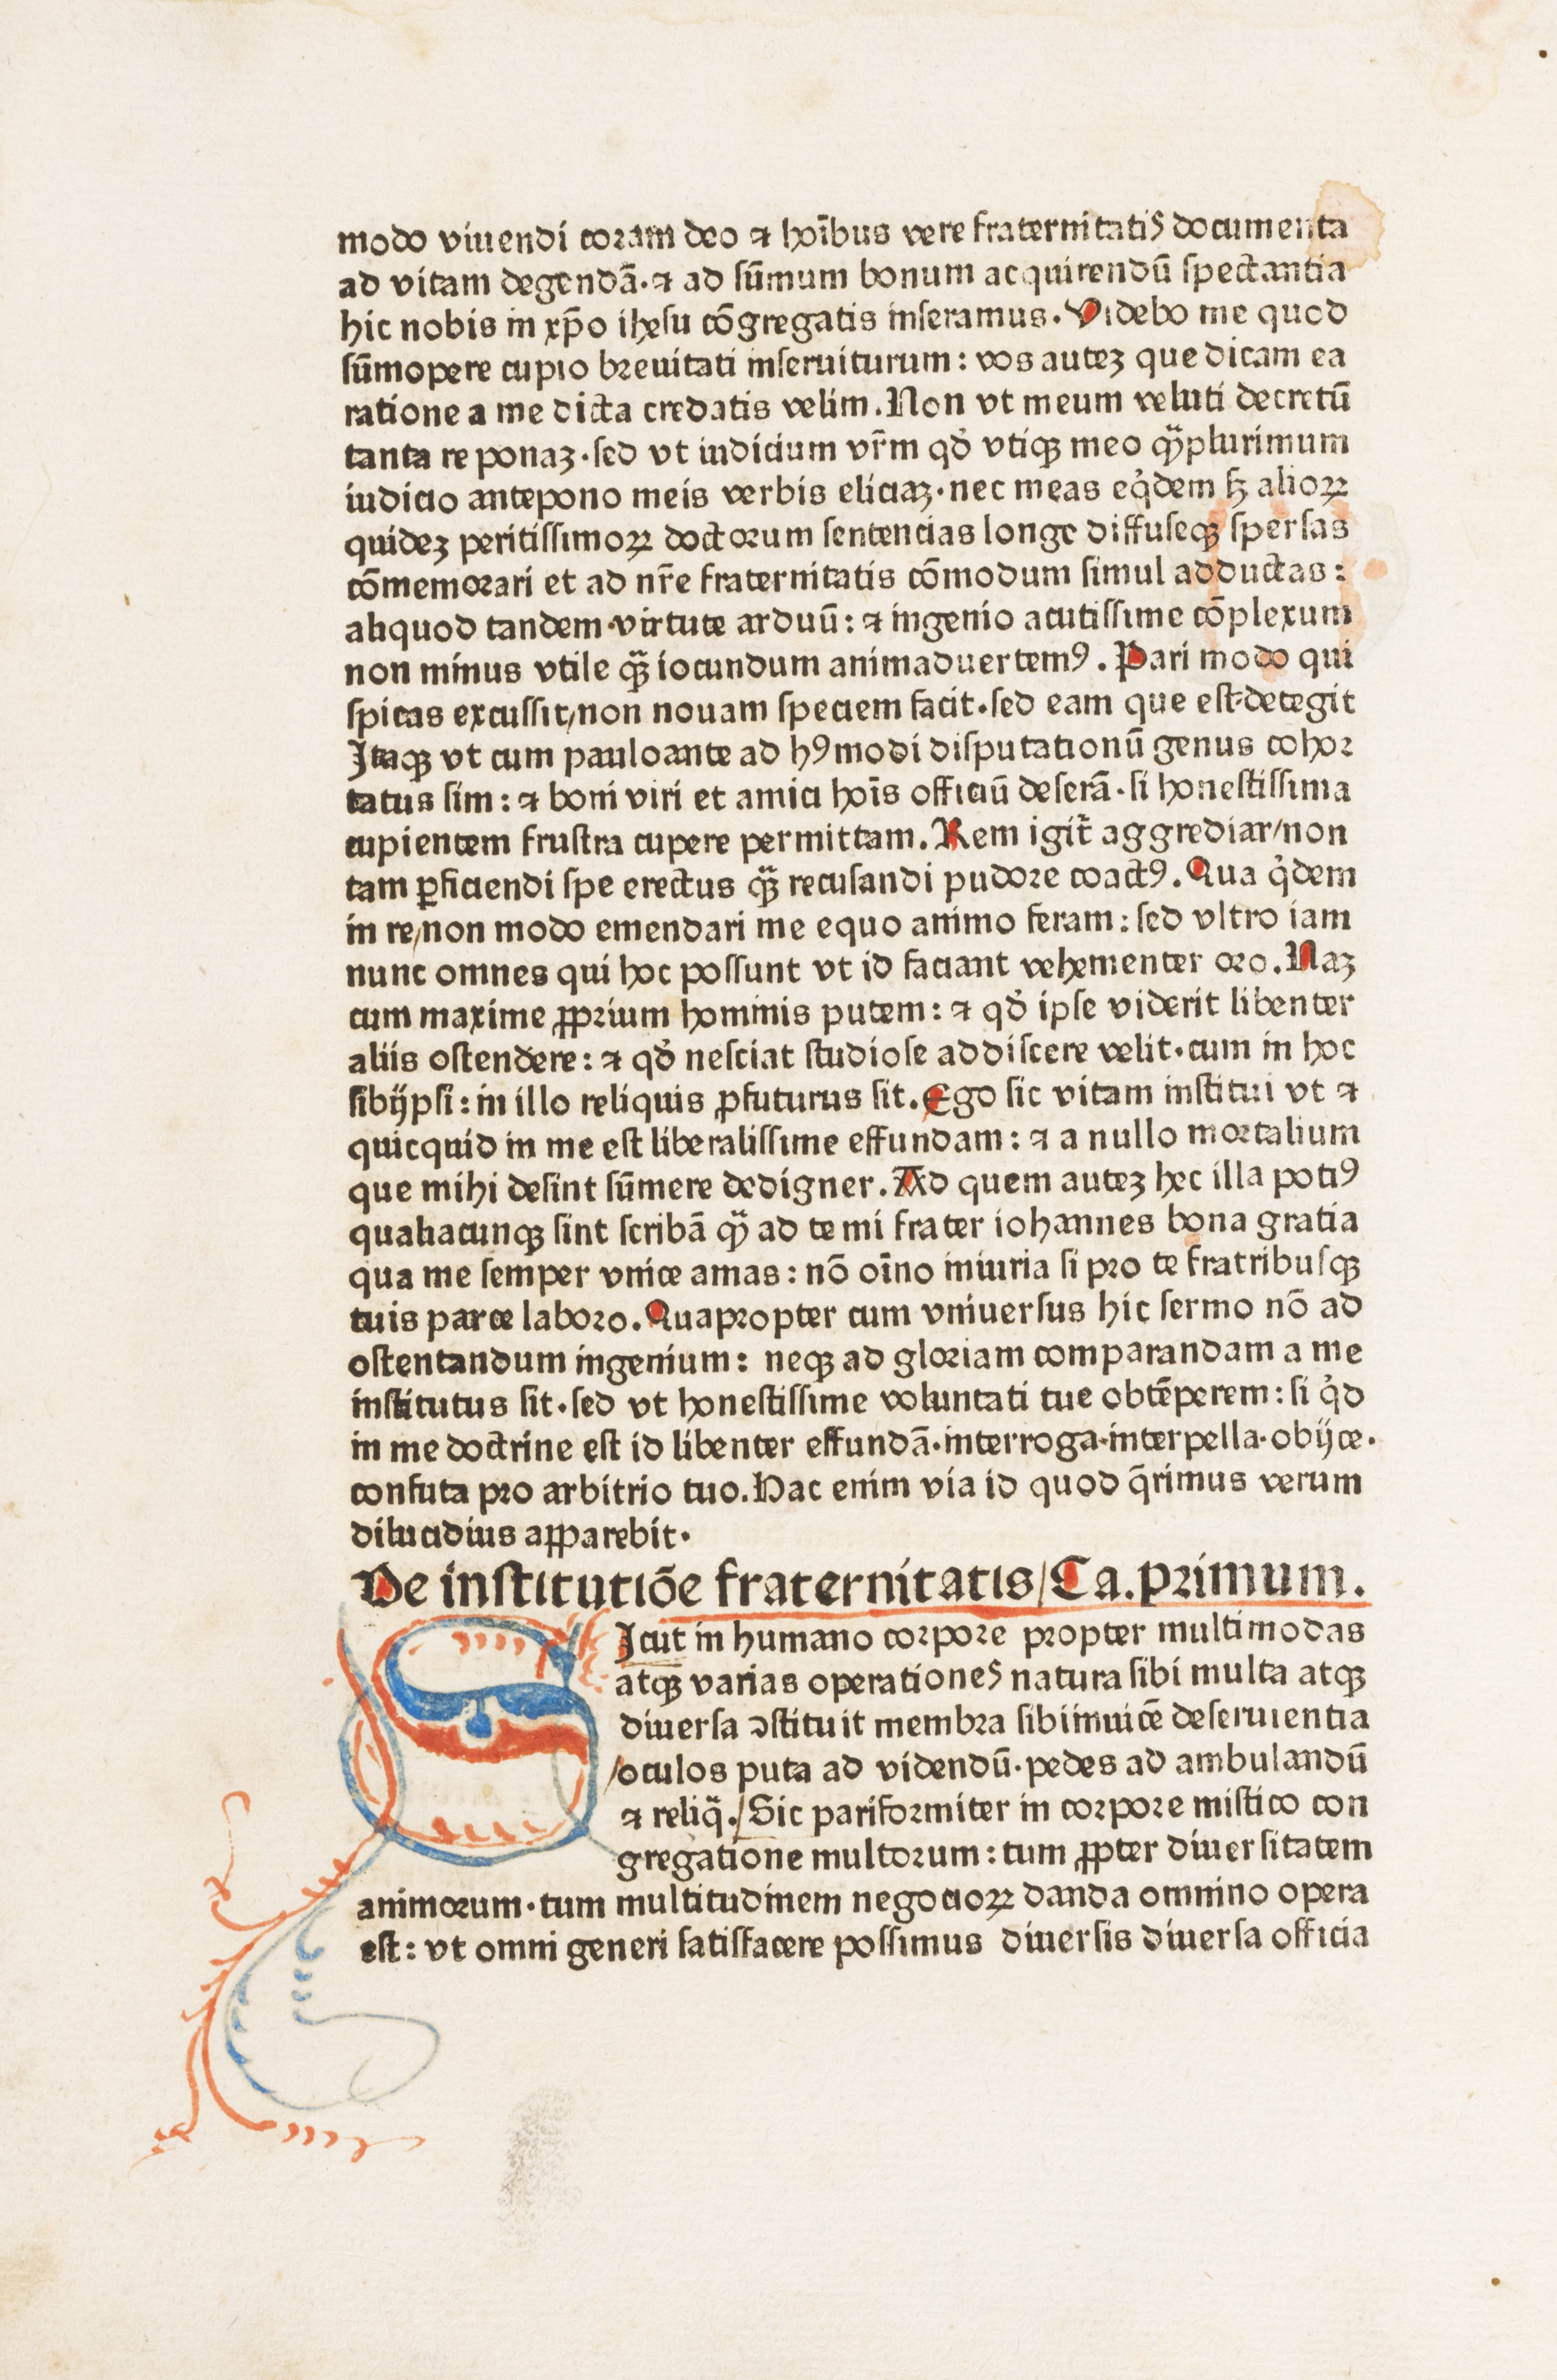 modo viuendi coram deo ⁊ hoībus vere fraternitatis documenta
ad vitam degendā·⁊ ad sūmum bonum acquirendū spectantia
hic nobis in xp̄o ihesu cōgregatis inseramus. Videbo me quod
sūmopere cupio breuitati inseruiturum: vos auteꝫ que dicam ea
ratione a me dicta credatis velim. Non vt meum veluti decretū
tanta re ponaꝫ·sed vt iudicium vr̄m qd̓ vtiqꝫ meo qᷓꝫplurimum
iudicio antepono meis verbis eliciaꝫ·nec meas eq̇dem sꝫ alioꝝ
quideꝫ peritissimoꝝ doctorum sentencias longe diffuseqꝫ spersas
cōmemorari et ad nr̄e fraternitatis cōmodum simul adductas:
aliquod tandem·virtute arduū: ⁊ ingenio acutissime cōplexum
non minus vtile qᷓꝫ iocundum animaduertemꝰ. Pari modo qui
spicas excussit/non nouam speciem facit·sed eam que est·detegit
Itaqꝫ vt cum pauloante ad hꝰmodi disputationū genus cohor
tatus sim: ⁊ boni viri et amici hoīs officiū deserā·si honestissima
cupientem frustra cupere permittam. Rem igit̄ aggrediar/non
tam ꝑficiendi spe erectus qᷓꝫ recusandi pudore coactꝰ. Qua q̇dem
in re/non modo emendari me equo animo feram: sed vltro iam
nunc omnes qui hoc possunt vt id faciant vehementer oro. Naꝫ
cum maxime ꝓprium hominis putem: ⁊ qd̓ ipse viderit libenter
aliis ostendere: ⁊ qd̓ nesciat studiose addiscere velit·cum in hoc
sibijpsi: in illo reliquis ꝓfuturus sit. Ego sic vitam institui vt ⁊
quicquid in me est liberalissime effundam: ⁊ a nullo mortalium
que mihi desint sūmere dedigner. Ad quem auteꝫ hec illa potiꝰ
qualiacunqꝫ sint scribā qᷓꝫ ad te mi frater iohannes bona gratia
qua me semper vnice amas: nō oīno iniuria si pro te fratribusqꝫ
tuis parce laboro. Quapropter cum vniuersus hic sermo nō ad
ostentandum ingenium: neqꝫ ad gloriam comparandam a me
institutus sit·sed vt honestissime voluntati tue obtēperem: si q̇d
in me doctrine est id libenter effundā·interroga·interpella·obijce·
confuta pro arbitrio tuo. Hac enim via id quod q̄rimus verum
dilucidius apparebit·
De institutiōe fraternitatis/Ca.primum.
SIcut in humano corpore propter multimodas
atqꝫ varias operationes natura sibi multa atqꝫ
diuersa ꝯstituit membra sibiinuicē deseruientia
/oculos puta ad videndū·pedes ad ambulandū
⁊ reliq̄./Sic pariformiter in corpore mistico con
gregatione multorum: tum ꝓpter diuersitatem
animorum·tum multitudinem negocioꝝ danda omnino opera
est: vt omni generi satisfacere possimus diuersis diuersa officia